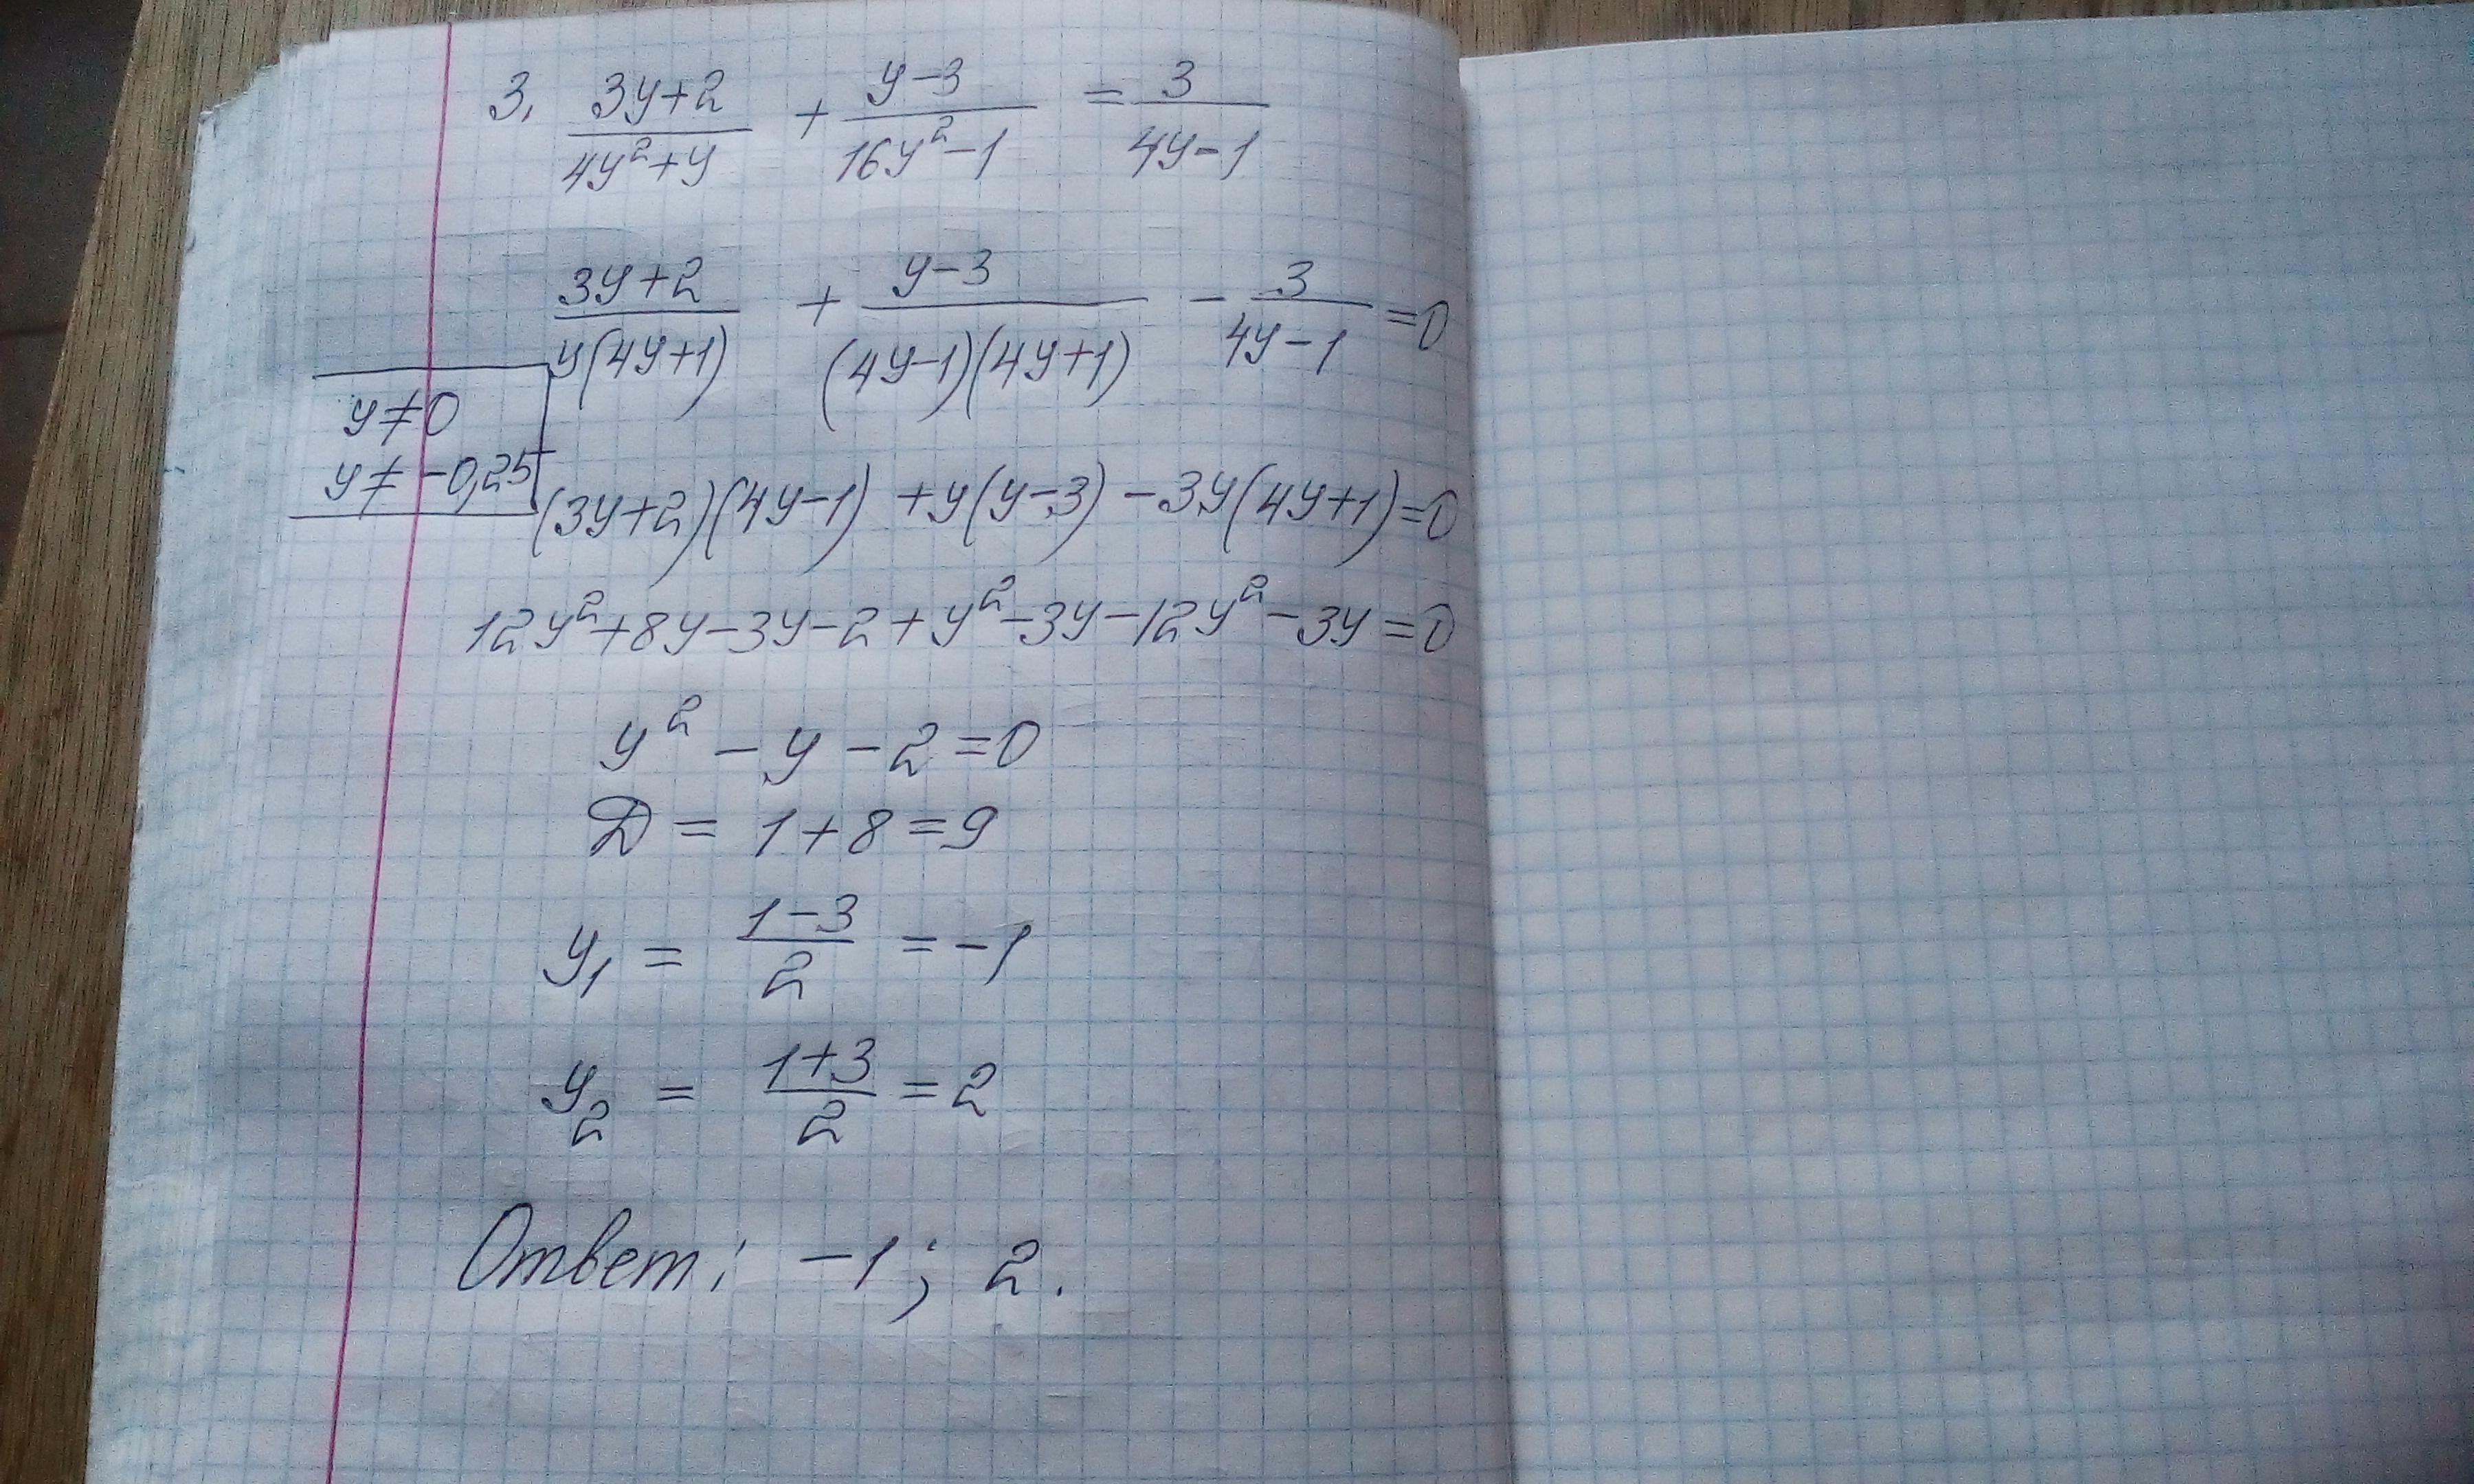 3. (3y+2)/(4y²+y) + (y-3)/(16y²-1) = 3/(4y-1)
(3y+2)/(y(4y+1)) + (y-3)/((4y-1)(4y+1)) - 3/(4y-1) = 0
y≠0
y≠-0,25
(3y+2)(4y-1) + y(y-3) - 3y(4y+1) = 0
12y²+8y-3y-2+y²-3y-12y²-3y=0
y² - y - 2 = 0
D = 1+8=9
y₁ = (1-3)/2 = -1
y₂ = (1+3)/2 = 2
Ответ: -1; 2.